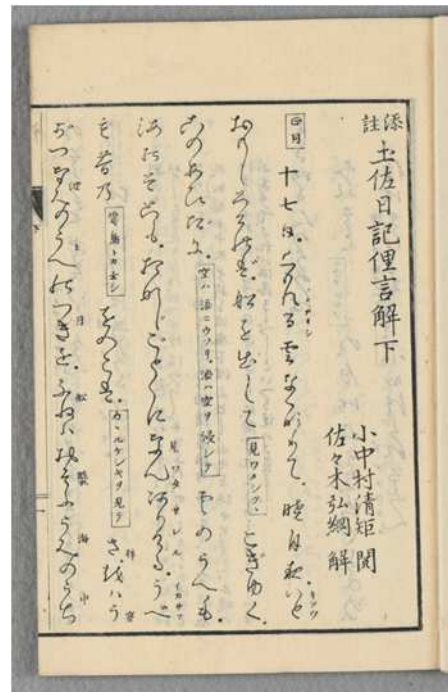 添註 土佐日記俚言解下
小中村清矩閲
佐々木弘綱解
正月 十七日。くもれる雲なくなりて。暁月夜いと
おもしろければ。船を出して 見ワタシテ、こぎゆく。
このあひだに。空ハ海ニウツリ、海ハ空ヲ浸シテ 雲のうへも。
海の底も。おなじごとくになんありける。うべ
も昔の
をのこは。 さ。棹ハう
がつなみのうへのつきを。ふねハおそふうみのうち